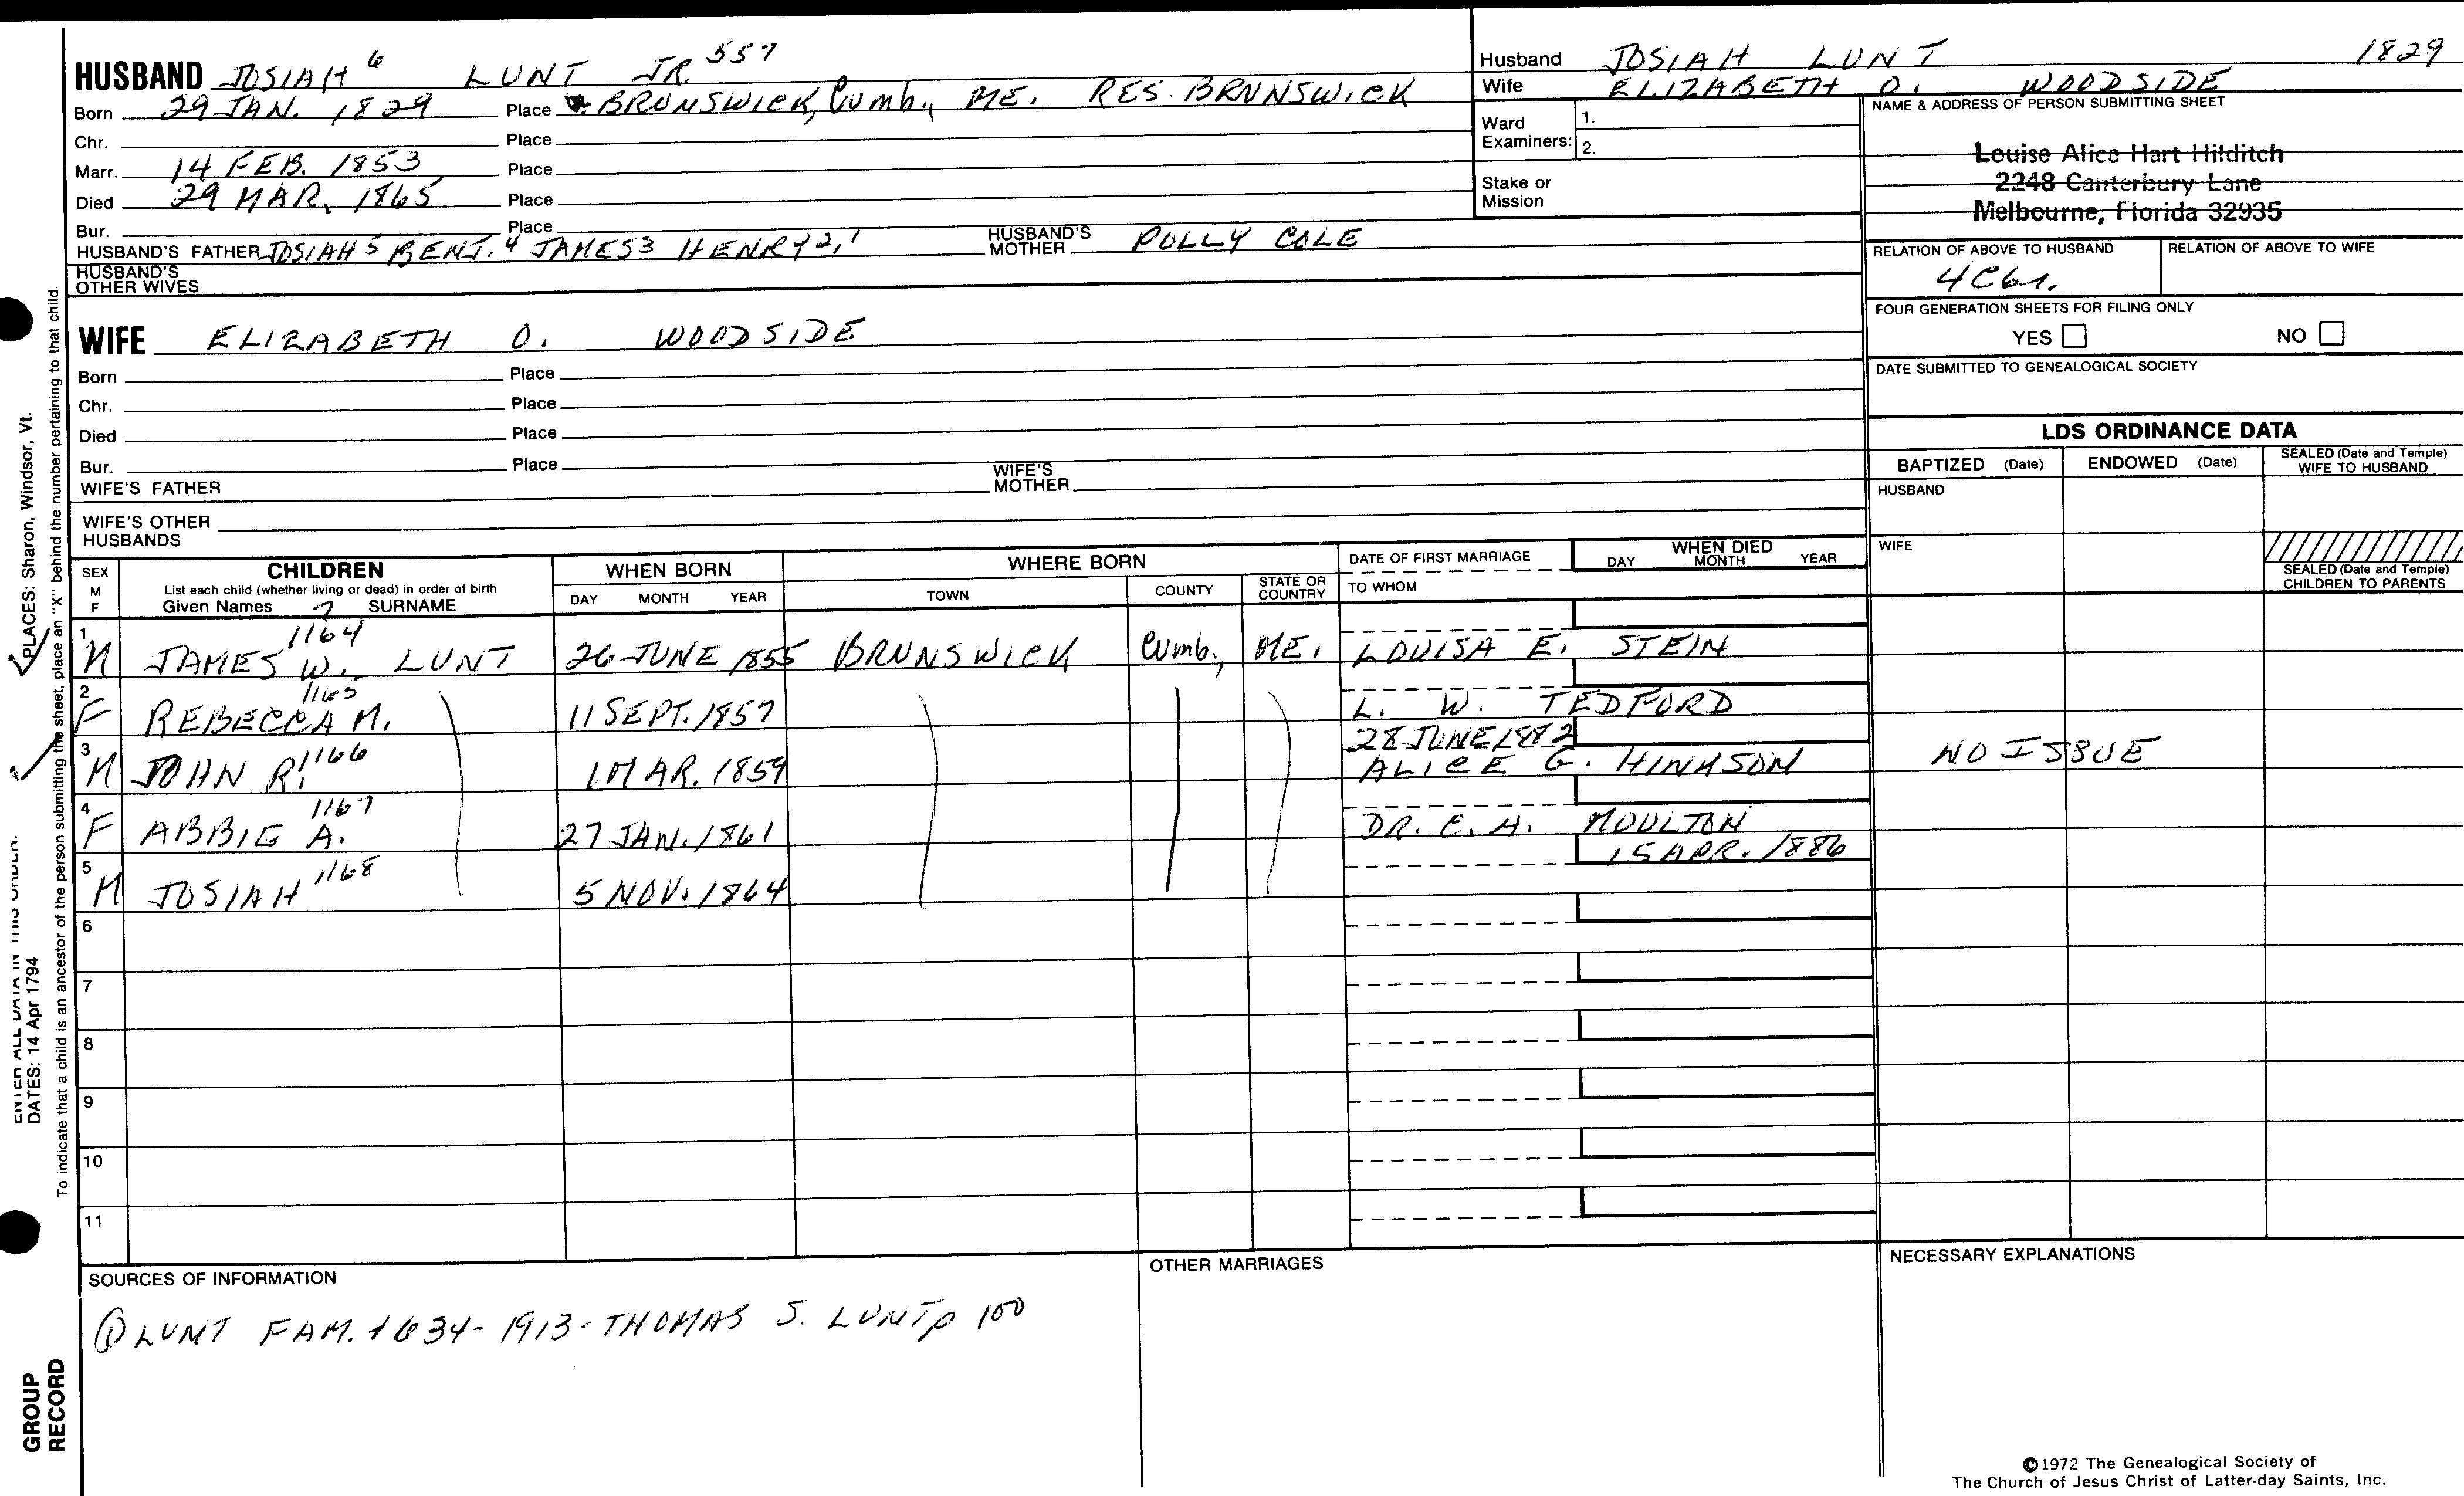 HUSBAND JOSIAH 6 LUNT JR. 557
Born 29 JAN. 1829 Place BRUNSWICK, Cumb., ME. RES. BRUNSWICK
Chr. Place
Marr. 14 FEB. 1853 Place
Died 29 MAR. 1865 Place
Bur. Place
HUSBAND'S FATHER JOSIAH 5 BENJ. 4 JAMES 3 HENRY 2,1 HUSBAND'S MOTHER POLLY COLE
HUSBAND'S OTHER WIVES
Husband JOSIAH LUNT 1829
Wife ELIZABETH O. WOODSIDE
Ward Examiners: 1.
2.
Stake or Mission
NAME & ADDRESS OF PERSON SUBMITTING SHEET
Louise Alice Hart Hilditch
2248 Canterbury Lane
Melbourne, Florida 32935
RELATION OF ABOVE TO HUSBAND RELATION OF ABOVE TO WIFE
4C6r.
FOUR GENERATION SHEETS FOR FILING ONLY
YES NO
DATE SUBMITTED TO GENEALOGICAL SOCIETY
WIFE ELIZABETH O. WOODSIDE
Born Place
Chr. Place
Died Place
Bur. Place
WIFE'S FATHER WIFE'S MOTHER
WIFE'S OTHER HUSBANDS
LDS ORDINANCE DATA
BAPTIZED (Date) ENDOWED (Date) SEALED (Date and Temple) WIFE TO HUSBAND
HUSBAND
WIFE
SEALED (Date and Temple) CHILDREN TO PARENTS
SEX M F
CHILDREN
List each child (whether living or dead) in order of birth
Given Names 7 SURNAME
WHEN BORN
DAY MONTH YEAR
WHERE BORN
TOWN COUNTY STATE OR COUNTRY
DATE OF FIRST MARRIAGE
TO WHOM
WHEN DIED
DAY MONTH YEAR
1 M JAMES W. 1164 LUNT 26 JUNE 1855 BRUNSWICK Cumb., ME. LOUISA E. STEIN
2 F REBECCA M. 1165 11 SEPT. 1857 L. W. TEDFORD
3 M JOHN R. 1166 1 MAR. 1859 28 JUNE 1882 ALICE G. HINKSON NO ISSUE
4 F ABBIE A. 1167 27 JAN. 1861 DR. E. A. MOULTON
5 M JOSIAH 1168 5 NOV. 1864 15 APR. 1886
6
7
8
9
10
11
SOURCES OF INFORMATION
① LUNT FAM. 1634-1913-THOMAS S. LUNT p 100
OTHER MARRIAGES
NECESSARY EXPLANATIONS
©1972 The Genealogical Society of
The Church of Jesus Christ of Latter-day Saints, Inc.
PLACES: Sharon, Windsor, Vt.
ENTER ALL DATA IN THIS ORDER:
DATES: 14 Apr 1794
To indicate that a child is an ancestor of the person submitting the sheet, place an "X" behind the number pertaining to that child.
GROUP
RECORD